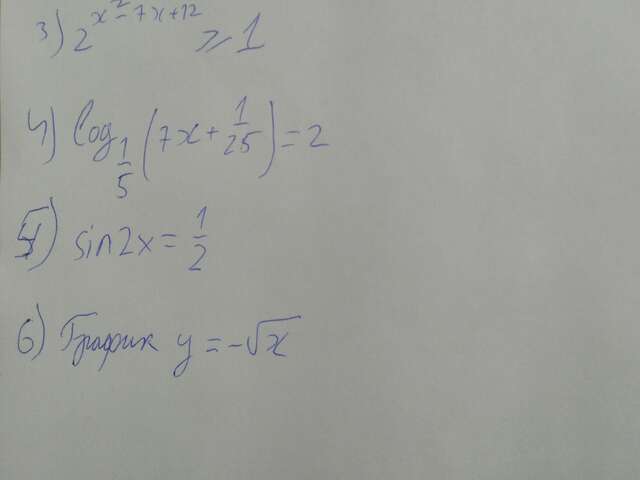 3) 2^{x^2-7x+12} ⩾ 1
4) log_{1/5} (7x + 1/25) = 2
5) sin2x = 1/2
6) График y = -√x